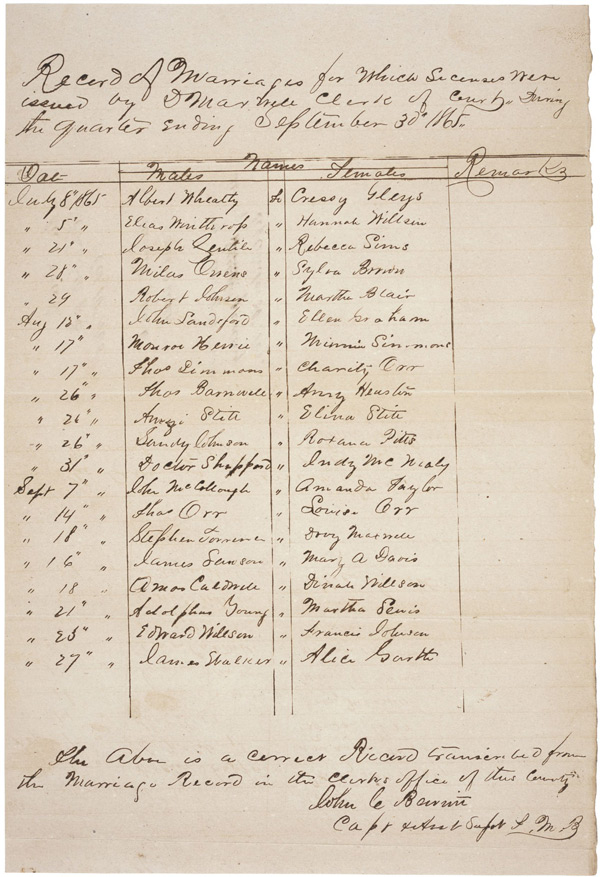 Record of Marriages for Which Licenses Were
issued by D Maxwell Clerk of Court, During
the quarter Ending September 30th 1865.
Names
Date Males Females Remarks
July 8th 1865 Albert Wheatly to Cressy
" 5" " Elias Winthrop " Hannah Willson
" 21" " Joseph " Rebecca Sims
" 28" " Milas Owens " Sylva Brown
" 29 Robert Johnson " Martha Blair
Aug 12" " John Sandeford " Ellen Graham
" 17" " Monroe " Minnie Simmons
" 17" " Thos Simmons " Charity Orr
" 26" " Thos Barnwell " Amy Heustin
" 26" " Stitt " Elina Stitt
" 26" " Sandy Johnson " Roxana Pitts
" 31" " Doctor Shepperd " Indy McNealy
Sept 7" " John McCollough " Amanda Taylor
" 14" " Thos Orr " Louisa Orr
" 18" " Stephen Torrence " Dovy Maxwell
" 16" " James Sanson " Mary A Davis
" 18 " Amos Caldwell " Dinah Willson
" 21" " Adolphas Young " Martha Lewis
" 25" " Edward Willson " Francis Johnson
" 27" " James Walker " Alice Garth
The Above is a correct Record transcribed from
the Marriage Record in the Clerks office of this County
John C Barnett
Capt & Asst Supt F. M. B